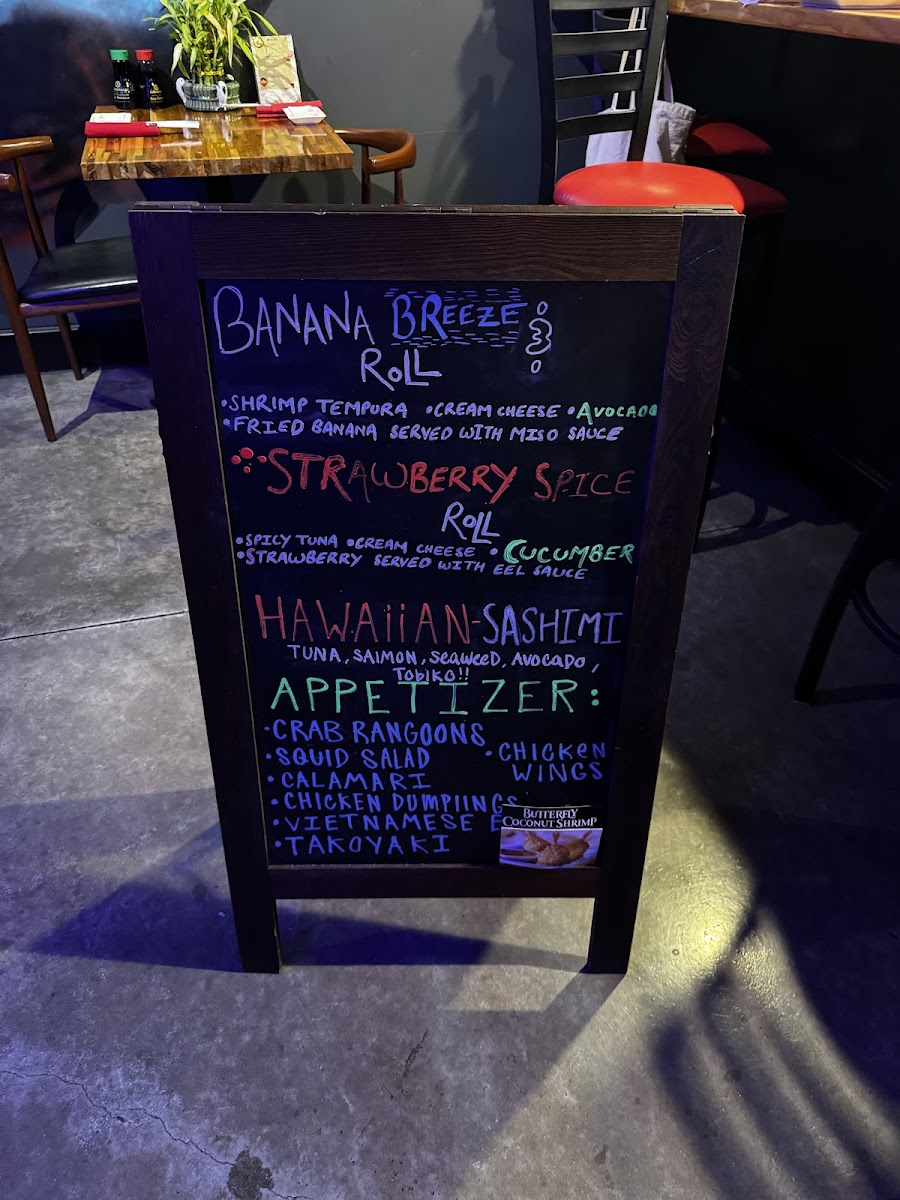 BANANA BREEZE
ROLL
•SHRIMP TEMPURA •CREAM CHEESE •AVOCADO
•FRIED BANANA SERVED WITH MISO SAUCE
STRAWBERRY SPICE
ROLL
•SPICY TUNA •CREAM CHEESE •CUCUMBER
•STRAWBERRY SERVED WITH EEL SAUCE
HAWAiiAN-SASHIMI
TUNA, SALMON, SEAWEED, AVOCADO,
TOBIKO!!
APPETIZER:
•CRAB RANGOONS
•SQUID SALAD
•CHICKEN
WINGS
•CALAMARI
•CHICKEN DUMPLINGS
•VIETNAMESE
•TAKOYAKI
BUTTERFLY
COCONUT SHRIMP